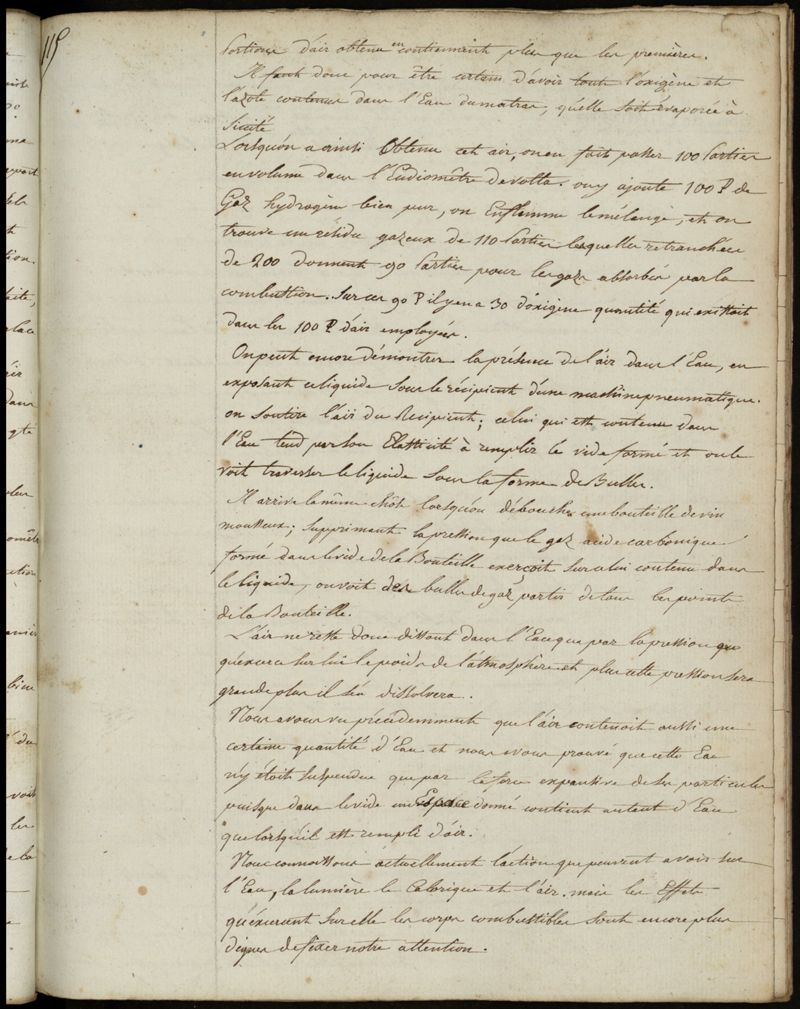 115
portions d'air obtenu en contiennent plus que les premières.
Il faut donc pour être certain d'avoir tout l'oxigène et
l'azote contenus dans l'Eau du matras, qu'elle soit évaporée à
Siccité
Lorsqu'on a ainsi Obtenu cet air, on en fait passer 100 Parties
en volume dans l'Eudiomètre de volta. on y ajoute 100 P de
Gaz hydrogène bien pur, on Enflamme le mélange, et on
trouve un résidu gazeux de 110 Parties lesquelles retranchées
de 200 donnent 90 Parties pour les gaz absorbés par la
combustion. Sur ces 90 P il y en a 30 d'oxigène quantité qui existait
dans les 100 P d'air employées.
On peut encore démontrer la présence de l'air dans l'Eau, en
exposant ce liquide Sous le récipient d'une machine pneumatique.
on Soutire l'air du Récipient; celui qui est contenu dans
l'Eau tend par son Elasticité à remplir le vide formé et on le
voit traverser le liquide Sous la forme de Bulles.
Il arrive la même chose lorsqu'on débouche une bouteille de vin
mousseux; Supprimant la pression que le gaz acide carbonique
formé dans le vide de la Bouteille exerçoit Sur celui contenu dans
le liquide, on voit des bulles de gaz partir de tous les points
de la Bouteille.
L'air ne reste donc dissout dans l'Eau que par la pression que
qu'exerce sur lui le poids de l'atmosphère et plus cette pression sera
grande plus il s'en dissolvera.
Nous avons vu précédemment que l'air contenoit aussi une
certaine quantité d'Eau et nous avons prouvé que cette Eau
n'y étoit suspendue que par la force expansive de ses particules
puisque dans le vide un Espace donné contient autant d'Eau
que lorsqu'il est rempli d'air.
Nous connoissons actuellement l'action que peuvent avoir sur
l'Eau, la lumière le Calorique et l'air. mais les Effets
qu'exercent Sur elle les corps combustibles Sont encore plus
dignes de fixer notre attention.